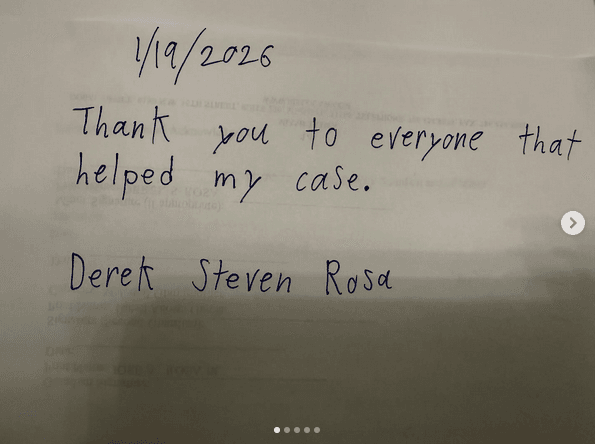 1/19/2026
Thank you to everyone that
helped my case.
Derek Steven Rosa